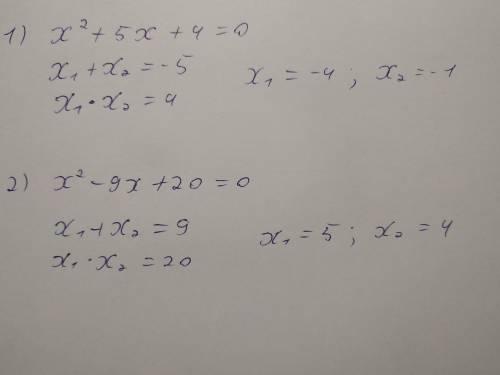 1) x² + 5x + 4 = 0
x₁ + x₂ = -5
x₁ = -4 ; x₂ = -1
x₁ · x₂ = 4
2) x² - 9x + 20 = 0
x₁ + x₂ = 9
x₁ = 5 ; x₂ = 4
x₁ · x₂ = 20